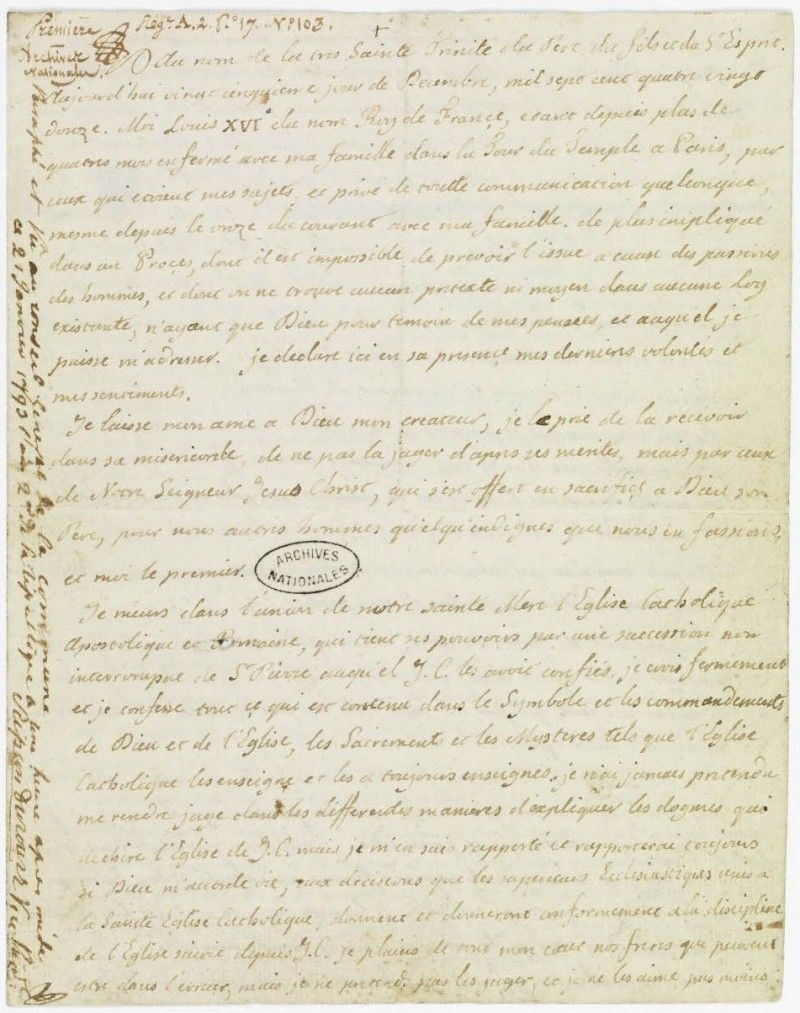 Première
Archives
Nationales
Reg.re A. 2. No 17. No 103.
Au nom de la tres Sainte Trinité du Pere du fils et du St Esprit.
aujourd'hui vingt cinquieme jour de Decembre, mil sept cent quatre vingt
douze. Moi Louis XVIe du nom Roy de France, etant depuis plus de
quatres mois enfermé avec ma famille dans la Tour du Temple a Paris, par
ceux qui etoient mes sujets, et privé de toutte communication quelconque,
mesme depuis le onze du courant avec ma famille. de plus impliqué
dans un Procès, dont il est impossible de prevoir l'issue a cause des passions
des hommes, et dont on ne trouve aucun pretexte ni moyen dans aucune Loy
existante, n'ayant que Dieu pour temoin de mes pensées, et auquel je
puisse m'adresser. je declare ici en sa presence mes dernieres volontés et
mes sentiments.
Je laisse mon ame a Dieu mon createur, je le prie de la recevoir
dans sa misericorde, de ne pas la juger d'apres ses merites, mais par ceux
de Notre Seigneur Jesus Christ, qui s'est offert en sacrifice a Dieu son
Pere, pour nous autres hommes quelqu'endignes que nous en fussions,
et moi le premier.
ARCHIVES
NATIONALES
Je meurs dans l'union de notre sainte Mere l'Eglise Catholique
Apostolique et Romaine, qui tient ses pouvoirs par une succession non
interrompue de St Pierre auquel J.C. les avoit confiés. je crois fermement
et je confesse tout ce qui est contenu dans le Symbole et les commandements
de Dieu et de l'Eglise, les Sacrements et les Mysteres tels que l'Eglise
Catholique les enseigne et les a toujours enseignés. je n'ai jamais pretendu
me rendre juge dans les differentes manieres d'expliquer les dogmes qui
dechire l'Eglise de J.C. mais je m'en suis rapporté et rapporterai toujours
si Dieu m'accorde vie, aux decisions que les superieurs Ecclesiastiques unis a
la Sainte Eglise Catholique, donnent et donneront conformement a la discipline
de l'Eglise suivie depuis J.C. je plains de tout mon cœur nos freres qui peuvent
estre dans l'erreur, mais je ne pretends pas les juger, et je ne les aime pas moins
Paraphé et au conseil General de la commune
ce 21 Janvier 1793 l'an 2d de la republique a une heure apres midi